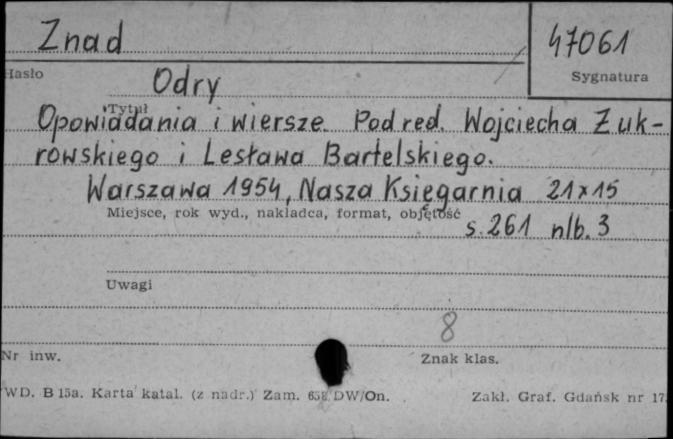 Znad 47061
Hasło Sygnatura
Odry
Tytuł
Opowiadania i wiersze. Pod red. Wojciecha Żuk-
rowskiego i Lesława Bartelskiego.
Warszawa 1954, Nasza Księgarnia 21x15
Miejsce, rok wyd., nakładca, format, objętość
s. 261 nlb. 3
Uwagi
8
Nr inw. Znak klas.
WD. B 15a. Karta katal. (z nadr.) Zam. DW/On. Zakł. Graf. Gdańsk nr 17